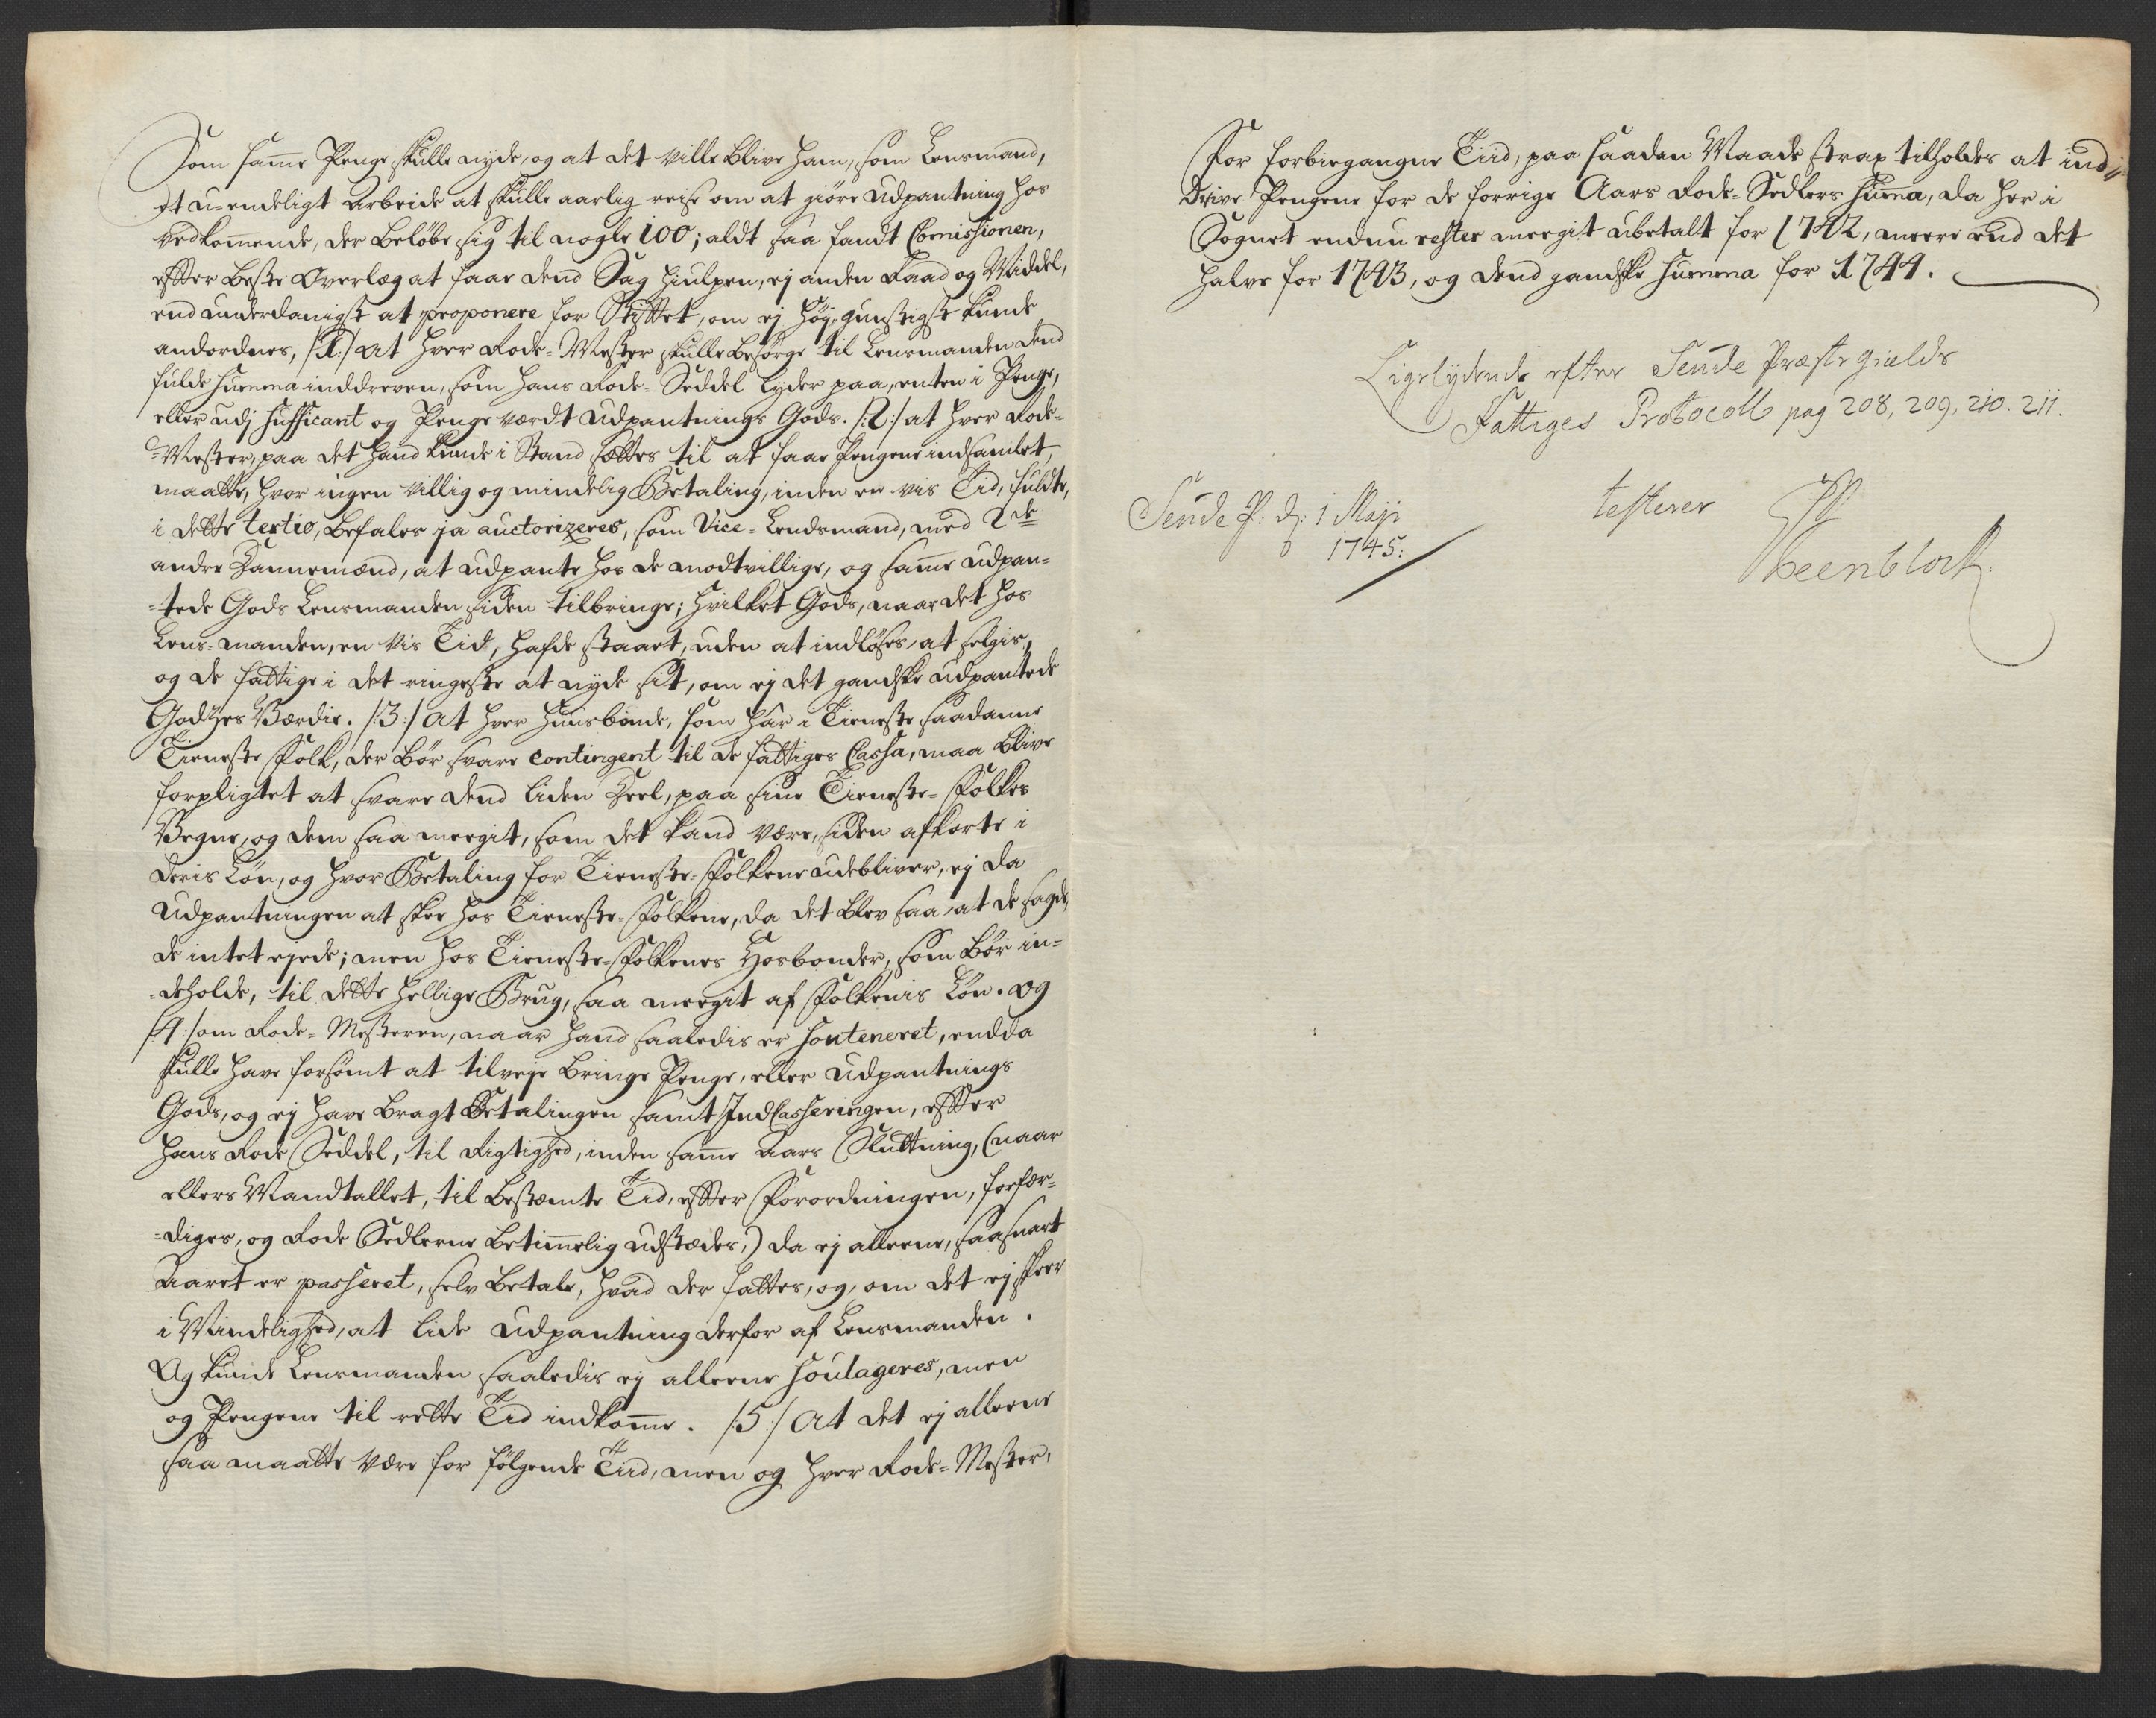 Som samme Penge skulle nyde, og at det ville blive ham, som Lensmand,
et u-endeligt Arbeide at skulle aarlig reise om at giöre Udpantning hos
vedkommende, der beløbe sig til nogle 100; aldt saa fandt Commissionen,
efter beste Overlæg at faae dend Sag hiulpen, ej anden Raad og Middel,
end underdanigst at proponere for Stiftet, om ej höj-gunstigst kunde
anordnes, /:1:/ At hver Rode-Mester skulle besørge til Lensmanden dend
fulde Summa inddreven, som hans Rode-Seddel lyder paa, enten i Penge,
eller udj sufficant og Penge værdt Udpantnings Gods. /:2:/ at hver Rode-
-Mester, paa det hand kunde i Stand sættes til at faae Pengene indsamlet,
maatte, hvor ingen villig og mindelig Betaling, inden en vis Tid, fuldte,
i dette tertio, befales ja auctorizeres, som Vice-Lendsmand, med 2de
andre Dannemænd, at udpante hos de modtvillige, og samme udpan-
-tede Gods Lensmanden siden tilbringe; hvilket Gods, naar det hos
Lens-manden, en vis Tid, hafde staaet, uden at indlöses, at selgis,
og de fattige i det ringeste at nyde sit, om ej det gandske udpantede
Godtzes Værdie. /:3:/ At hver Huusbonde, som har i Tieneste saadanne
Tieneste Folk, der bör svare contingent til de fattiges Cassa, maa blive
forpligtet at svare dend liden Deel, paa sine Tieneste-Folkes
Vegne, og dem saa meegit, som det kand være, siden afkorte i
deris Lön, og hvor Betaling for Tieneste-Folkene udebliver, ej da
Udpantningen at skee hos Tieneste-Folkene, da det blev saa, at de sagde,
de intet ejede; men hos Tieneste-Folkenes Hosbonder, som bör in-
-deholde, til dette hellige Brug, saa meegit af Folkenis Lön. Og
/:4:/ om Rode-Mesteren, naar hand saaledis er souteneret, endda
skulle have forsömt at tilveje bringe Penge, eller Udpantnings
Gods, og ej have bragt Betalingen samt IndCasseringen, efter
hans Rode Seddel, til Rigtighed, inden samme Aars Sluttning, (naar
ellers Mandtallet, til bestemte Tid, efter Forordningen, forfær-
-diges, og Rode Sedlerne betimmelig udstædes,) da ej alleene, saasnart
Aaret er passeret, selv betale, hvad der fattes, og, om det ej skeer
i Mindelighed, at lide Udpantning derfor af Lensmanden.
Og kunde Lensmanden saaledis ej alleene soulageres, men
og Pengene til rette Tid indkomme. /:5:/ At det ej alleene
saa maatte være for følgende Tiid, men og hver Rode-Mester,
For forbiegangne Tiid, paa saadan Maade strax tilholdes at ind-
drive Pengene for de forrige Aars Rode-Sedlers Summa, da her i
Sognet endnu rester meegit ubetalt for 1742, meere end det
halve for 1743, og dend gandske Summa for 1744.
Ligelydende efter Sende Præstegields
Fattiges Protocoll pag 208, 209, 210. 211.
Sende P: d: 1 Maji
1745:
testerer